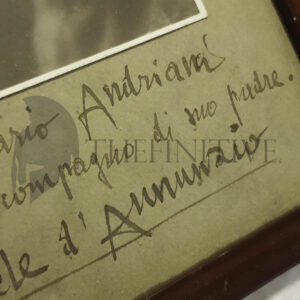 ario Andriani
compagno di suo padre.
ele d'Annunzio
THEFINITIVE